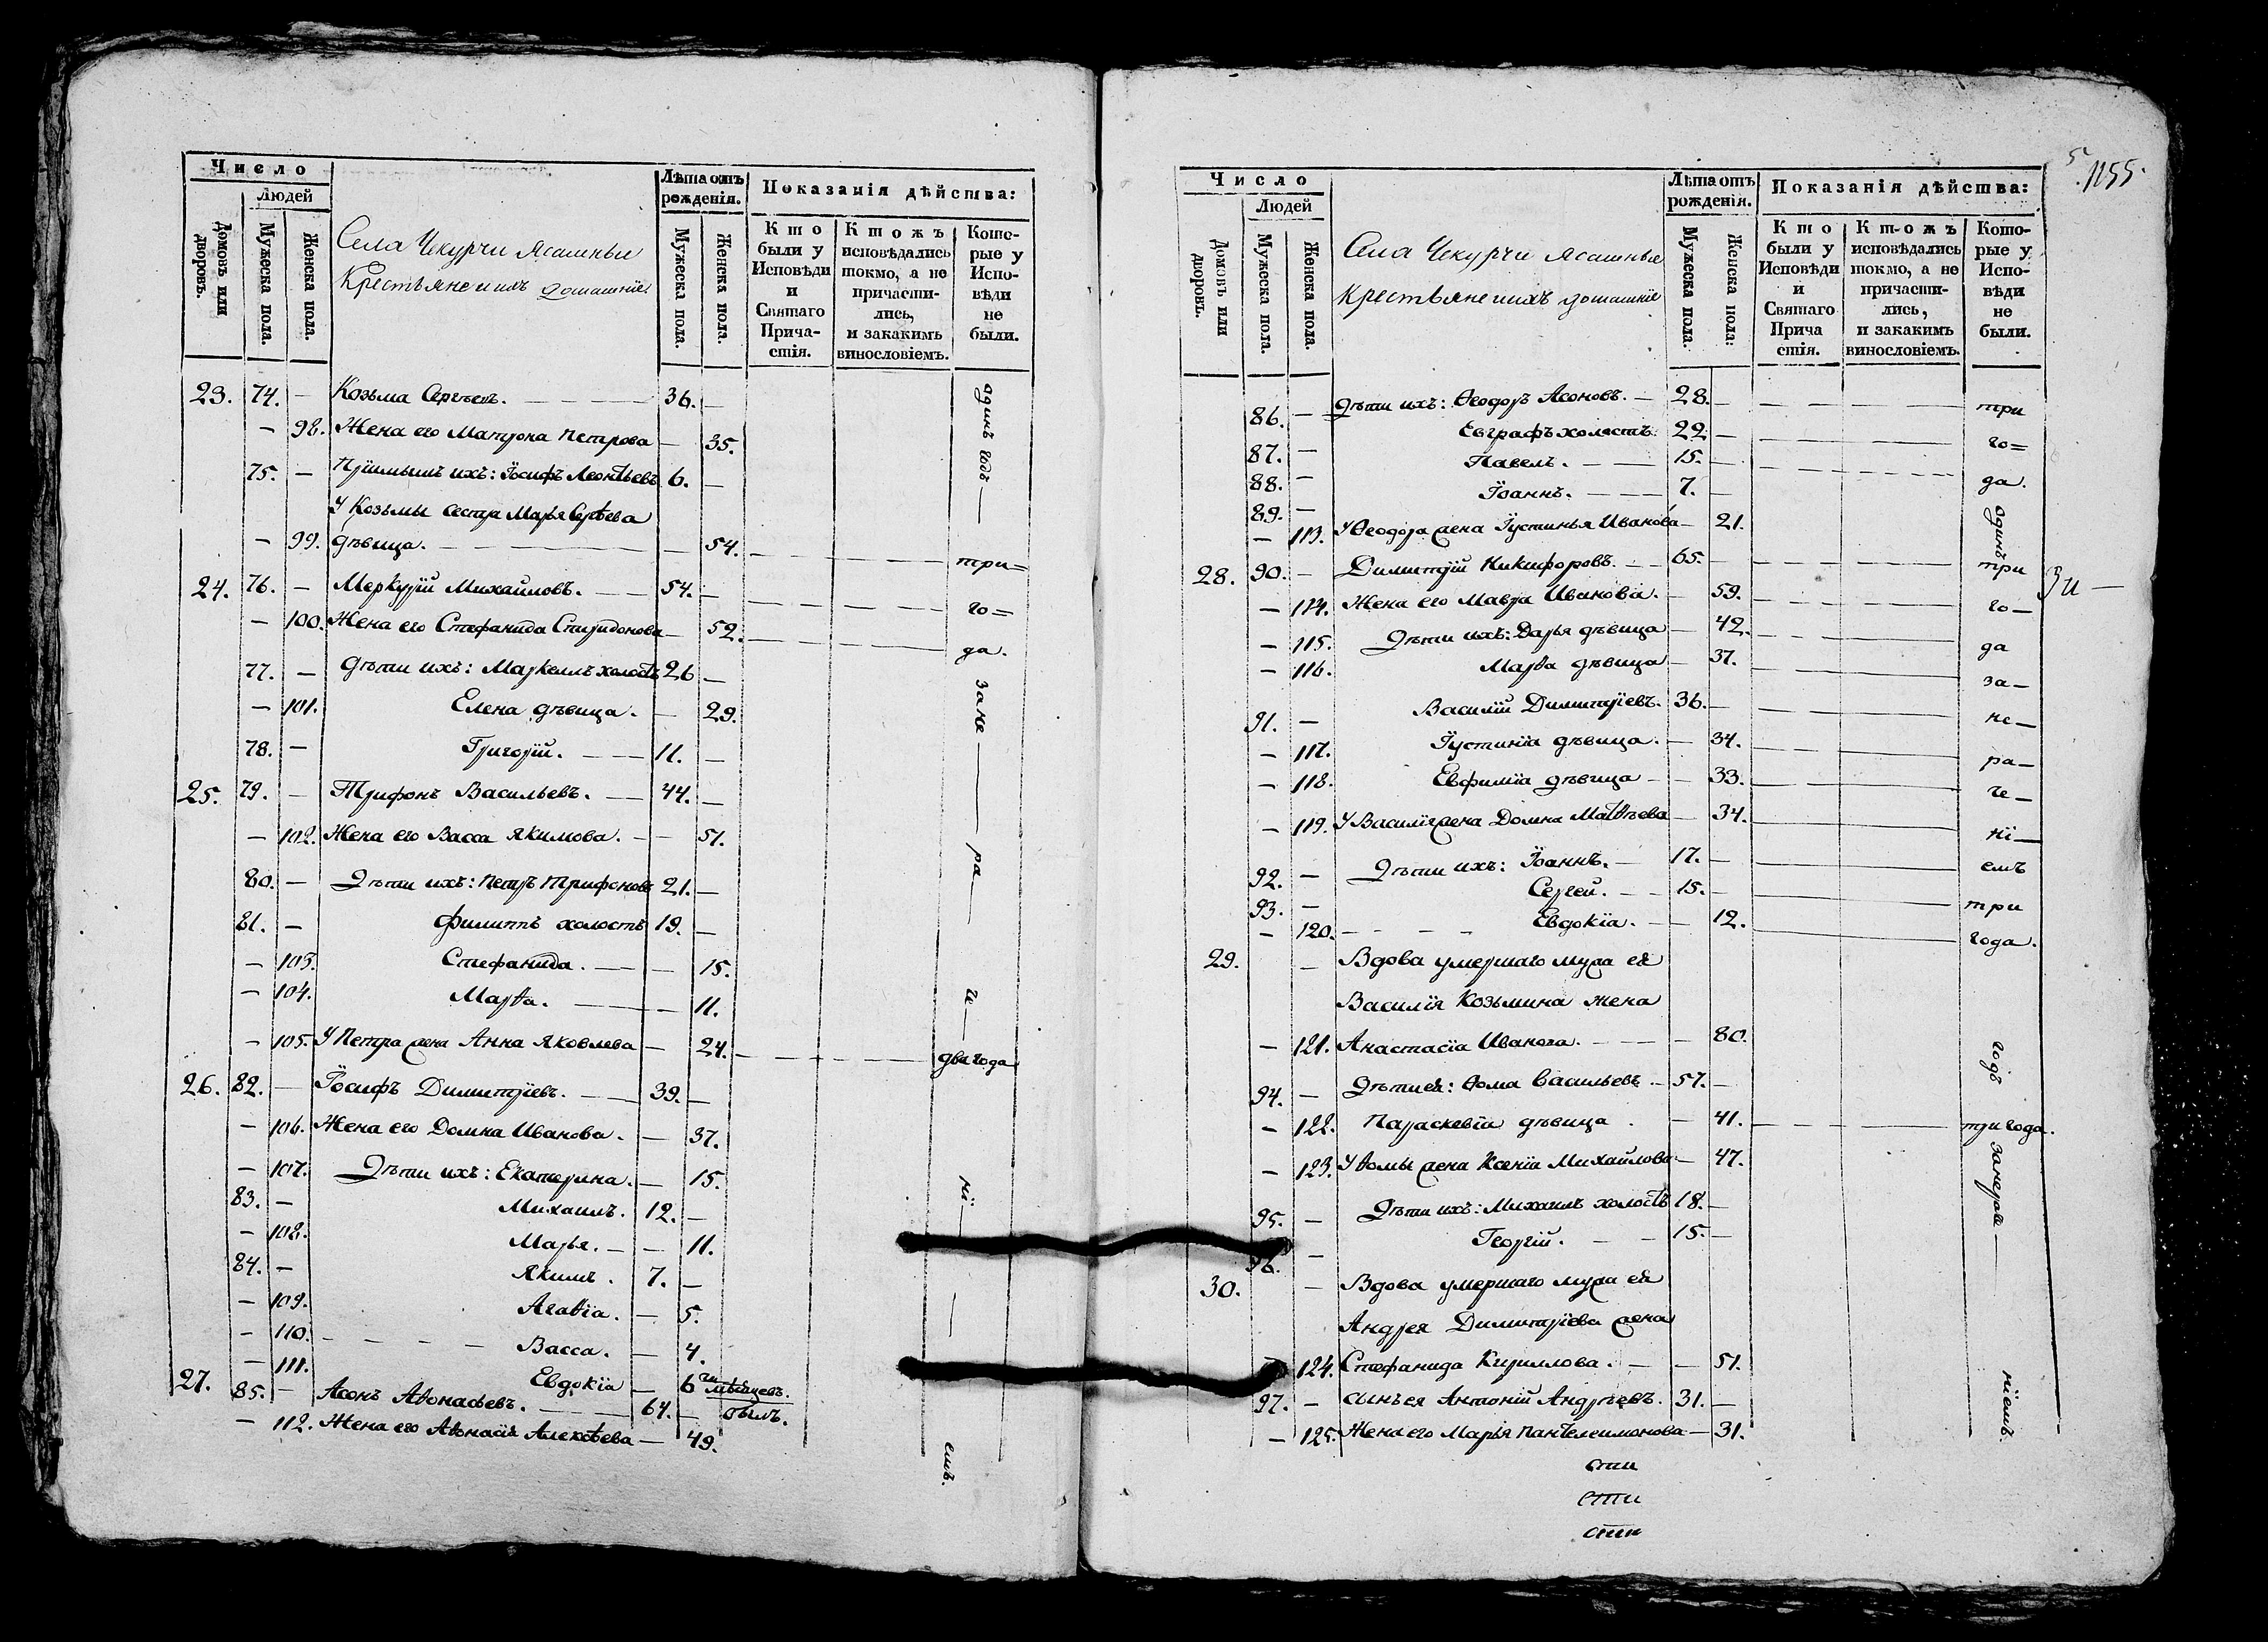 Число
Людей
Домовъ или дворовъ.
Мужеска пола.
Женска пола.
Села Чекурчи Ясашные
Крестьяне и ихъ домашніе.
Лѣта отъ рожденія.
Мужеска пола.
Женска пола.
Показанія дѣйства:
Кто были у Исповѣди и Святаго Прича-стія.
Ктожъ исповѣдались токмо, а не причасти-лись, и закакимъ винословіемъ.
Кото-рые у Испо-вѣди не были.
23. 74. — Козьма Сергѣевъ. — 36. — одинъ годъ —
— 98. Жена его Матрона Петрова — 35.
75. — Пріимышъ ихъ: Іосифъ Леонтьевъ 6. —
У Козьмы сестра Марья Сергѣева
— 99. дѣвица. — — 54. — три=
24. 76. — Меркурій Михайловъ. — 54. — го=
— 100. Жена его Стефанида Спиридонова — 52. — да.
77. — Дѣти ихъ: Маркеллъ холостъ 26 —
— 101. Елена дѣвица. — 29. за не —
78. — Григорій. — 11. —
25. 79. — Трифонъ Васильевъ. — 44. —
— 102. Жена его Васса Якимова. — 51. ра —
80. — Дѣти ихъ: Петръ Трифоновъ 21. —
81. — Филиппъ холостъ 19. —
— 103. Стефанида. — — 15.
— 104. Марѳа. — 11. че —
— 105. У Петра жена Анна Яковлева — 24. — два года
26. 82. — Іосифъ Димитріевъ. — 39. —
— 106. Жена его Домна Иванова. — 37.
— 107. Дѣти ихъ: Екатерина. — 15.
83. — Михаилъ. 12. — ні —
— 108. Марья. — — 11.
84. — Якимъ. 7. —
— 109. Агаѳіа. — 5.
— 110. — Васса. — 4.
— 111. Евдокіа — 6ти мѣсяцевъ.
27. 85. — Асонъ Аѳонасьевъ. — 64. — былъ.
— 112. Жена его Аѳонасія Алексѣева — 49. емъ.
1155.
Число
Людей
Домовъ или дворовъ.
Мужеска пола.
Женска пола.
Села Чекурчи Ясашные
Крестьяне и ихъ домашніе
Лѣта отъ рожденія.
Мужеска пола.
Женска пола:
Показанія дѣйства:
Кто были у Исповѣди и Святаго Прича стія.
Ктожъ исповѣдались токмо, а не причасти-лись, и закакимъ винословіемъ.
Кото-рые у Испо-вѣди не были.
86. — Дѣти ихъ: Ѳеодоръ Асоновъ. — 28. — три
87. — Евграфъ холостъ. 22 — го=
88. — Павелъ. — 15. — да.
89. — Іоаннъ. — 7. —
— 113. У Ѳеодора жена Іустинья Иванова — 21. одинъ
28. 90. — Димитрій Никифоровъ. — 65. — три
— 114. Жена его Мавра Иванова. — 59. го—
— 115. Дѣти ихъ: Дарья дѣвица — 42. да
— 116. Марѳа дѣвица — 37. за—
91. — Василій Димитріевъ. 36. — не—
— 117. Іустиніа дѣвица. — 34. ра—
— 118. Евфиміа дѣвица — 33. че—
— 119. У Василія жена Домна Матвѣева — 34. ні—
92. — Дѣти ихъ: Іоаннъ. — 17. — емъ
93. — Сергей. — 15. — три
— 120. — Евдокіа. — 12. года.
29. — Вдова умершаго мужа ея
Василія Козьмина жена
— 121. Анастасіа Иванова. — 80. годъ
94. — Дѣти ея: Ѳома Васильевъ — 57. —
— 122. Параскевіа дѣвица. — 41. — три года.
— 123. У Ѳомы жена Ксеніа Михайлова — 47. занераче
95. — Дѣти ихъ: Михаилъ холостъ 18. —
96. — Георгій. — 15. —
30. — Вдова умершаго мужа ея
Андрея Димитріева жена
— 124. Стефанида Кириллова. — — 51. ніемъ.
97. — Сынъ ея Антоній Андреевъ. 31. —
— 125. Жена его Марья Пантелеимонова — 31.